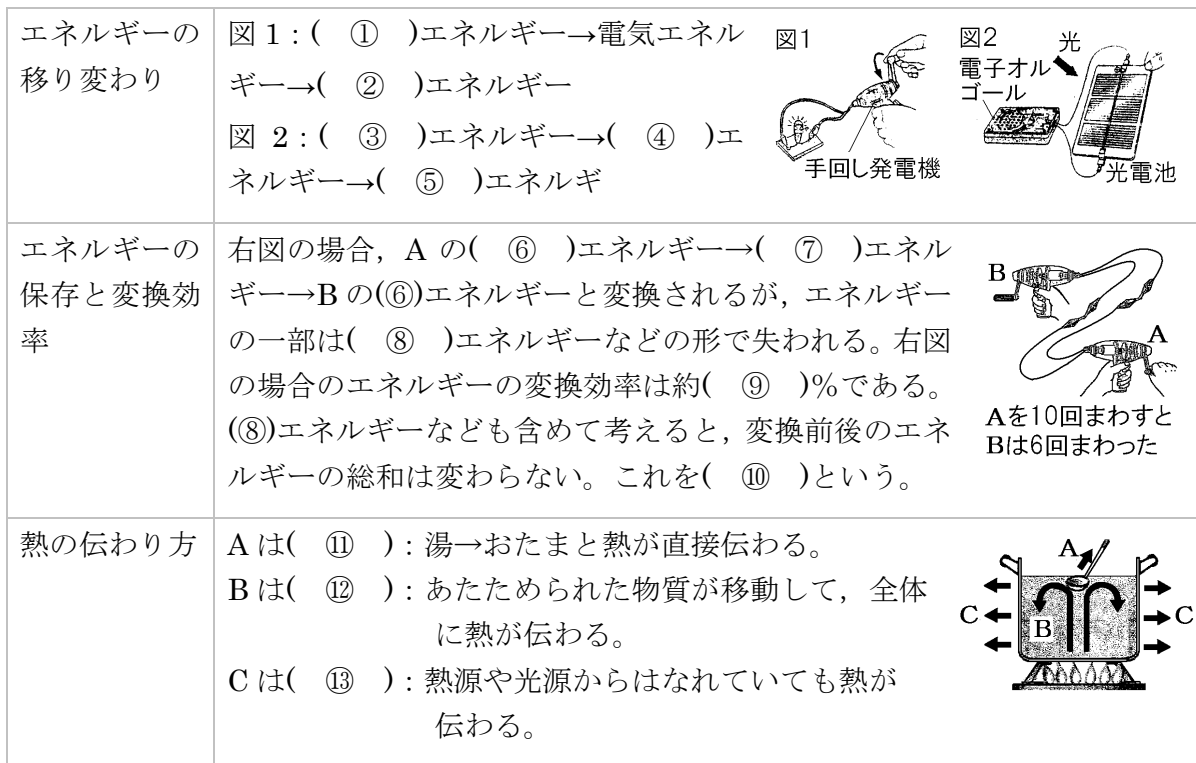 エネルギーの
移り変わり
図1：( ① )エネルギー→電気エネル
ギー→( ② )エネルギー
図 2：( ③ )エネルギー→( ④ )エ
ネルギー→( ⑤ )エネルギ
図1
手回し発電機
図2
光
電子オル
ゴール
光電池
エネルギーの
保存と変換効
率
右図の場合，A の( ⑥ )エネルギー→( ⑦ )エネル
ギー→B の(⑥)エネルギーと変換されるが，エネルギー
の一部は( ⑧ )エネルギーなどの形で失われる。右図
の場合のエネルギーの変換効率は約( ⑨ )%である。
(⑧)エネルギーなども含めて考えると，変換前後のエネ
ルギーの総和は変わらない。これを( ⑩ )という。
B
A
Aを10回まわすと
Bは6回まわった
熱の伝わり方
A は( ⑪ )：湯→おたまと熱が直接伝わる。
B は( ⑫ )：あたためられた物質が移動して，全体
に熱が伝わる。
C は( ⑬ )：熱源や光源からはなれていても熱が
伝わる。
A
C
B
C